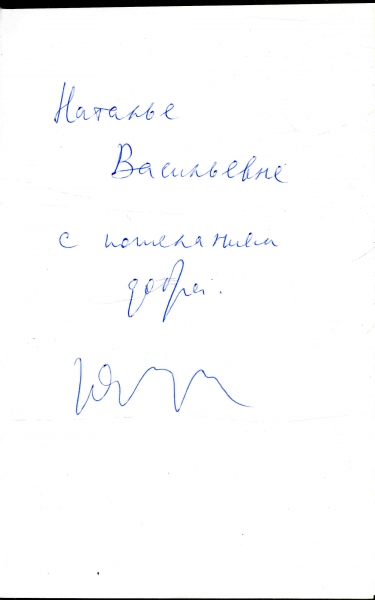 Наталье
Васильевне
с пожеланием
добра.